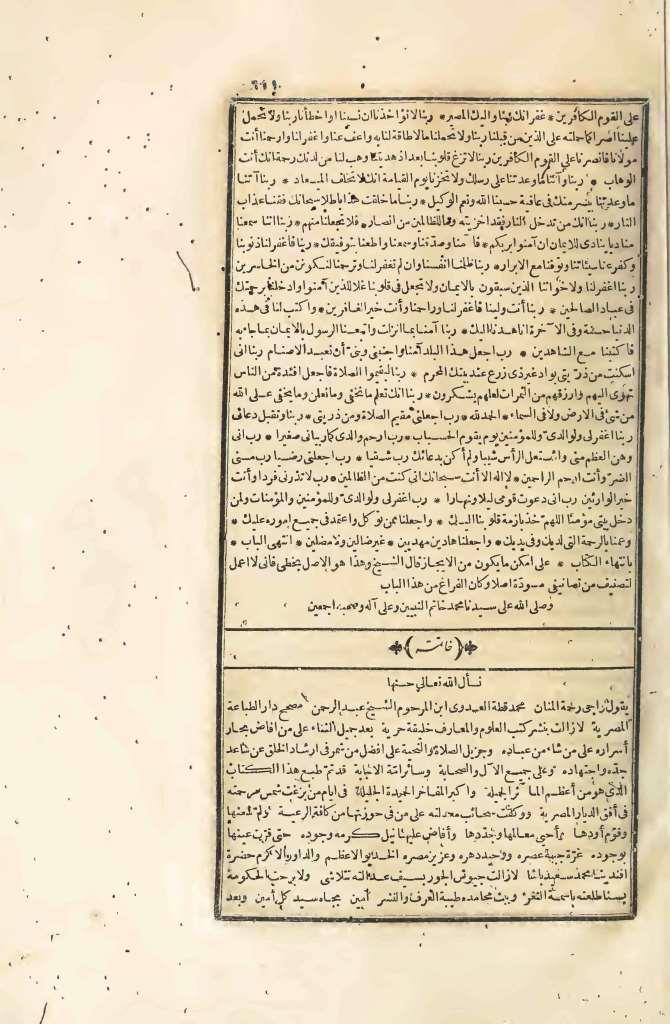 على القوم الكافرين * غفرانك ربنا واليك المصير * ربنا لا تؤاخذنا ان نسينا او اخطأنا ربنا ولا تحمل
علينا اصرا كما حملته على الذين من قبلنا ربنا ولا تحملنا ما لا طاقة لنا به واعف عنا واغفر لنا وارحمنا أنت
مولانا فانصرنا على القوم الكافرين ربنا لا تزغ قلوبنا بعد اذ هديتنا وهب لنا من لدنك رحمة انك أنت
الوهاب * ربنا وآتنا ما وعدتنا على رسلك ولا تخزنا يوم القيامة انك لا تخلف الميعاد * ربنا آتنا
ما وعدتنا بيسر منك فى عافية حسبنا الله ونعم الوكيل * ربنا ما خلقت هذا باطلا سبحانك فقنا عذاب
النار * ربنا انك من تدخل النار فقد اخزيته وما للظالمين من انصار * فلا تجعلنا منهم * ربنا اننا سمعنا
مناديا ينادى للايمان ان آمنوا بربكم * فآمنا وصدقنا وسمعنا واطعنا بتوفيقك * ربنا فاغفر لنا ذنوبنا
وكفر عنا سيئاتنا وتوفنا مع الابرار * ربنا ظلمنا انفسنا وان لم تغفر لنا وترحمنا لنكونن من الخاسرين
ربنا اغفر لنا ولاخواننا الذين سبقون بالايمان ولا تجعل فى قلوبنا غلا للذين آمنوا وادخلنا برحمتك
فى عبادك الصالحين * ربنا أنت ولينا فاغفر لنا وارحمنا وأنت خير الغافرين * واكتب لنا فى هذه
الدنيا حسنة وفى الآخرة انا هدنا اليك * ربنا آمنا بما انزلت واتبعنا الرسول بالايمان بما جاء به
فاكتبنا مع الشاهدين * رب اجعل هذا البلد آمنا واجنبنى وبنى أن نعبد الاصنام ربنا انى
اسكنت من ذريتى بواد غير ذى زرع عند بيتك المحرم * ربنا ليقيموا الصلاة فاجعل افئدة من الناس
تهوى اليهم وارزقهم من الثمرات لعلهم يشكرون * ربنا انك تعلم ما نخفى وما نعلن وما يخفى على الله
من شئ فى الارض ولا فى السماء * الحمد لله * رب اجعلنى مقيم الصلاة ومن ذريتى * ربنا وتقبل دعائى
ربنا اغفر لى ولوالدى وللمؤمنين يوم يقوم الحساب * رب ارحم والدى كما ربيانى صغيرا * رب انى
وهن العظم منى واشتعل الرأس شيبا ولم أكن بدعائك رب شقيا * رب اجعلنى رضيا رب مسنى
الضر وأنت ارحم الراحمين * لا اله الا أنت سبحانك انى كنت من الظالمين * رب لا تذرنى فردا وأنت
خير الوارثين رب انى دعوت قومى ليلا ونهارا * رب اغفر لى ولوالدى وللمؤمنين والمؤمنات ولمن
دخل بيتى مؤمنا اللهم خذ بازمة قلوبنا اليك * واجعلنا ممن توكل واعتمد فى جميع اموره عليك *
وعمنا بالرحمة التى لديك وفى يديك * واجعلنا هادين مهديين * غير ضالين ولا مضلين * انتهى الباب *
بانتهاء الكتاب * على امكن ما يكون من الايجاز قال الشيخ وهذا هو الاصل بخطى فانى لا اعمل
لتصنيف من تصانيفى مسودة اصلا وكان الفراغ من هذا الباب
وصلى الله على سيدنا محمد خاتم النبيين وعلى آله وصحبه اجمعين
(خاتمة)
نسأل الله تعالى حسنها
يقول راجى رحمة المنان محمد قطة العدوى ابن المرحوم الشيخ عبد الرحمن مصحح دار الطباعة
المصرية لا زالت بنشر كتب العلوم والمعارف خليقة حرية بعد جميل الثناء على من افاض بحار
أسراره على من شاء من عباده وجزيل الصلاة والتحية على افضل من شمر فى ارشاد الخلق عن ساعد
جده واجتهاده وعلى جميع الآل والصحابة وسائر امة الانابة قد تم طبع هذا الكتاب
الذى هو من أعظم المآثر الجميلة واكبر المفاخر الحميدة الجليلة فى ايام من بزغت شمس مرحمته
فى أفق الديار المصرية ووكفت سحائب معدلته على من فى حوزتها من كافة الرعية ولم شعثها
وقوم أودها وأحيى معالمها وجددها وأفاض عليها نيل كرمه وجوده حتى قرت عينها
بوجوده غرة جبهة عصره ووحيد دهره وعزيز مصره الخديو الاعظم والداور الاكرم حضرة
افندينا محمد سعيد باشا لا زالت جيوش الجور بسيف عدالته تتلاشى ولا برحت الحكومة
بسنا طلعته باسمة الثغر وببث محامده طيبة العرف والنشر آمين بجاه سيد كل أمين وبعد